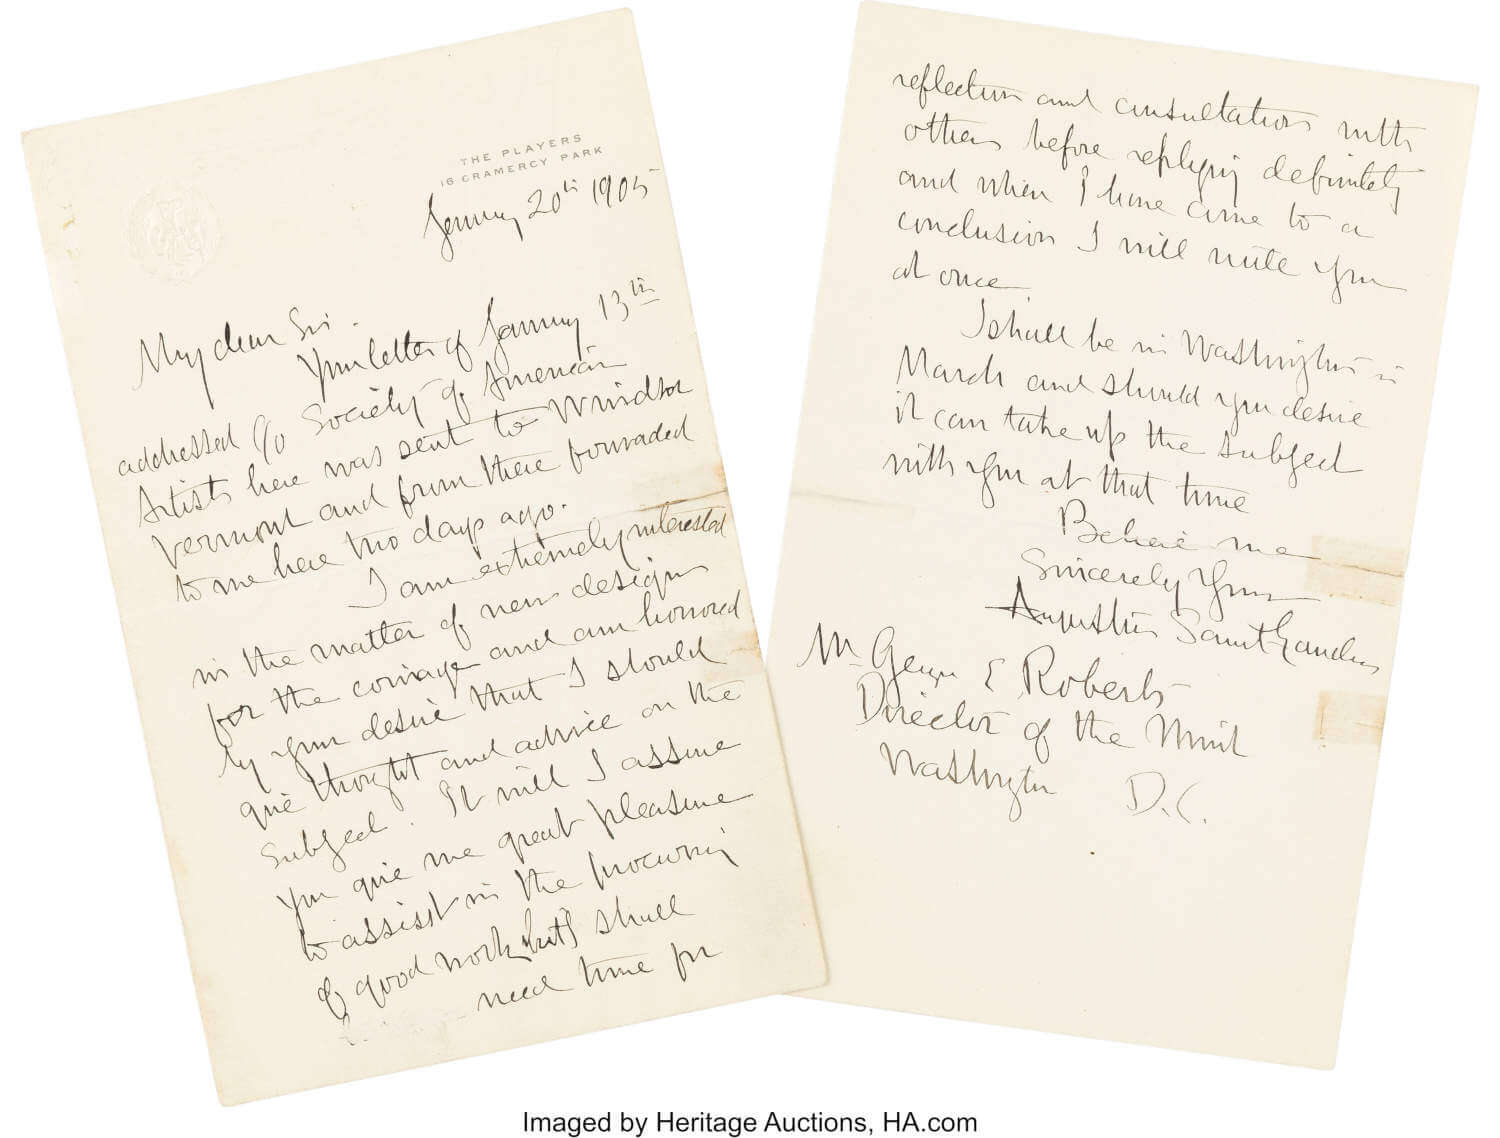 THE PLAYERS
16 GRAMERCY PARK
January 20th 1905
My dear Sir.
Your letter of January 13th
addressed c/o Society of American
Artists here was sent to Windsor
Vermont and from there forwaded
to me here two days ago.
I am extremely interested
in the matter of new designs
for the coinage and am honored
by your desire that I should
give thought and advice on the
subject. It will I assure
you give me great pleasure
to assist in the procuring
of good work but I shall
need time for
reflection and consultation with
others before replying definitely
and when I have come to a
conclusion I will write you
at once
I shall be in Washington in
March and should you desire
it can take up the subject
with you at that time
Believe me
Sincerely Yours
Augustus Saint Gaudens
Mr George E Roberts
Director of the Mint
Washington D.C.
Imaged by Heritage Auctions, HA.com